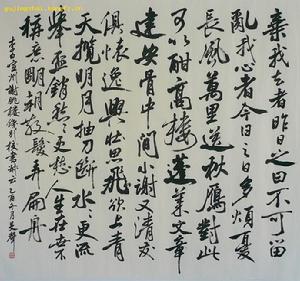 棄我去者昨日之日不可留
亂我心者今日之日多煩憂
長風萬里送秋雁對此
可以酣高樓蓬萊文章
建安骨中間小謝又清發
俱懷逸興壯思飛欲上青
天攬明月抽刀斷水々更流
舉杯銷愁々更愁人生在世不
稱意明朝散髮弄扁舟
李白宣州謝朓樓餞別校書叔雲乙酉年月